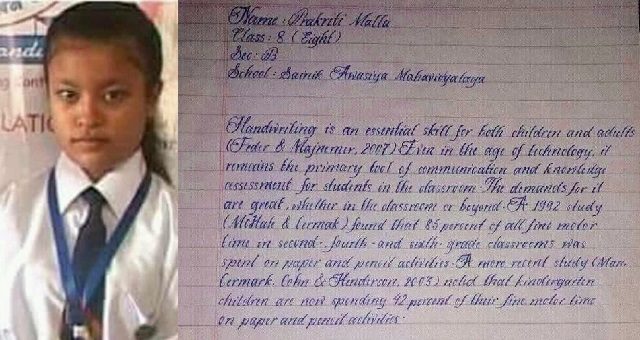 LATIO
Name : Prakriti Malla
Class : 8 ( Eight)
Sec : B
School : Sainik Awasiya Mahavidyalaya
Handwriting is an essential skill for both children and adults
(Feder & Majnemer, 2007) Even in the age of technology, it
remains the primary tool of communication and knowledge
assessment for students in the classroom. The demands for it
are great, whether in the classroom or beyond. A 1992 study
(McHale & Cermak) found that 85 percent of all fine motor
time in second-, fourth- and sixth- grade classrooms was
spent on paper and pencil activities. A more recent study (Marr,
Cermak, Cohn & Henderson, 2003) noted that kindergarten
children are now spending 42 percent of their fine motor time
on paper and pencil activities.